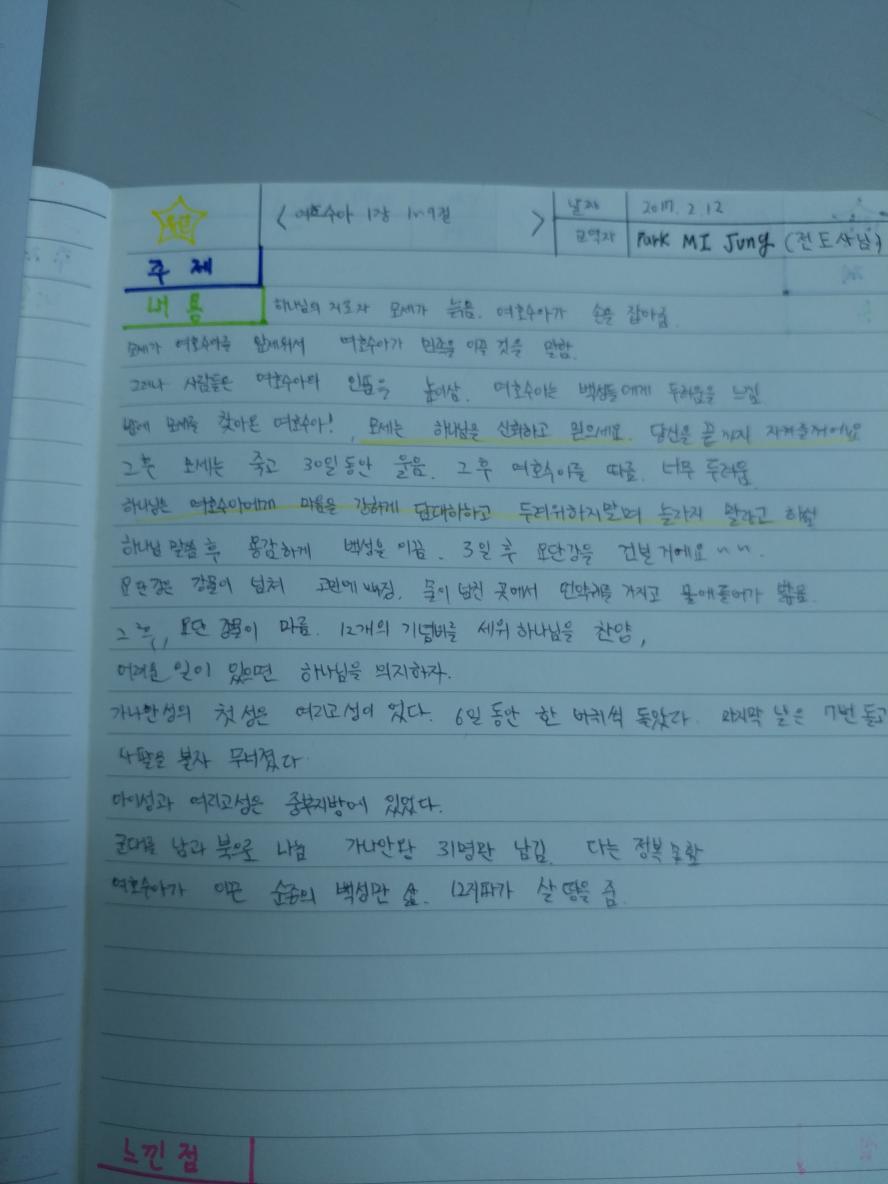 본문
< 여호수아 1장 1~9절 >
날짜 2017. 2. 12
교역자 Park MI Jung (전도사님)
주제
내용 하나님의 지도자 모세가 늙음. 여호수아가 손을 잡아줌.
모세가 여호수아를 앞세워서 여호수아가 민족을 이끌 것을 말함.
그러나 사람들은 여호수아의 인품을 높이삼. 여호수아는 백성들에게 두려움을 느낌.
밤에 모세를 찾아온 여호수아!, 모세는 하나님을 신뢰하고 믿으세요. 당신을 끝까지 지켜줄거에요
그 후 모세는 죽고 30일 동안 울음. 그 후 여호수아를 따름. 너무 두려움
하나님은 여호수아에게 마음을 강하게 담대하하고 두려워하지말며 놀라지 말라고 하심
하나님 말씀 후 용감하게 백성을 이끔. 3일 후 요단강을 건널거에요~~.
요단강은 강물이 넘쳐 고민에 빠짐. 물이 넘친 곳에서 언약궤를 가지고 물에 들어가 밟음.
그 후, 요단 강물이 마름. 12개의 기념비를 세워 하나님을 찬양,
어려운 일이 있으면 하나님을 의지하자.
가나안성의 첫 성은 여리고성이 었다. 6일 동안 한 바퀴씩 돌았다. 마지막 날은 7번 돌고
나팔을 불자 무너졌다
아이성과 여리고성은 중부지방에 있었다.
군대를 남과 북으로 나눔 가나안왕 31명만 남김. 다는 정복
여호수아가 이끈 순종의 백성만 삶. 12지파가 살 땅을 줌.
느낀점